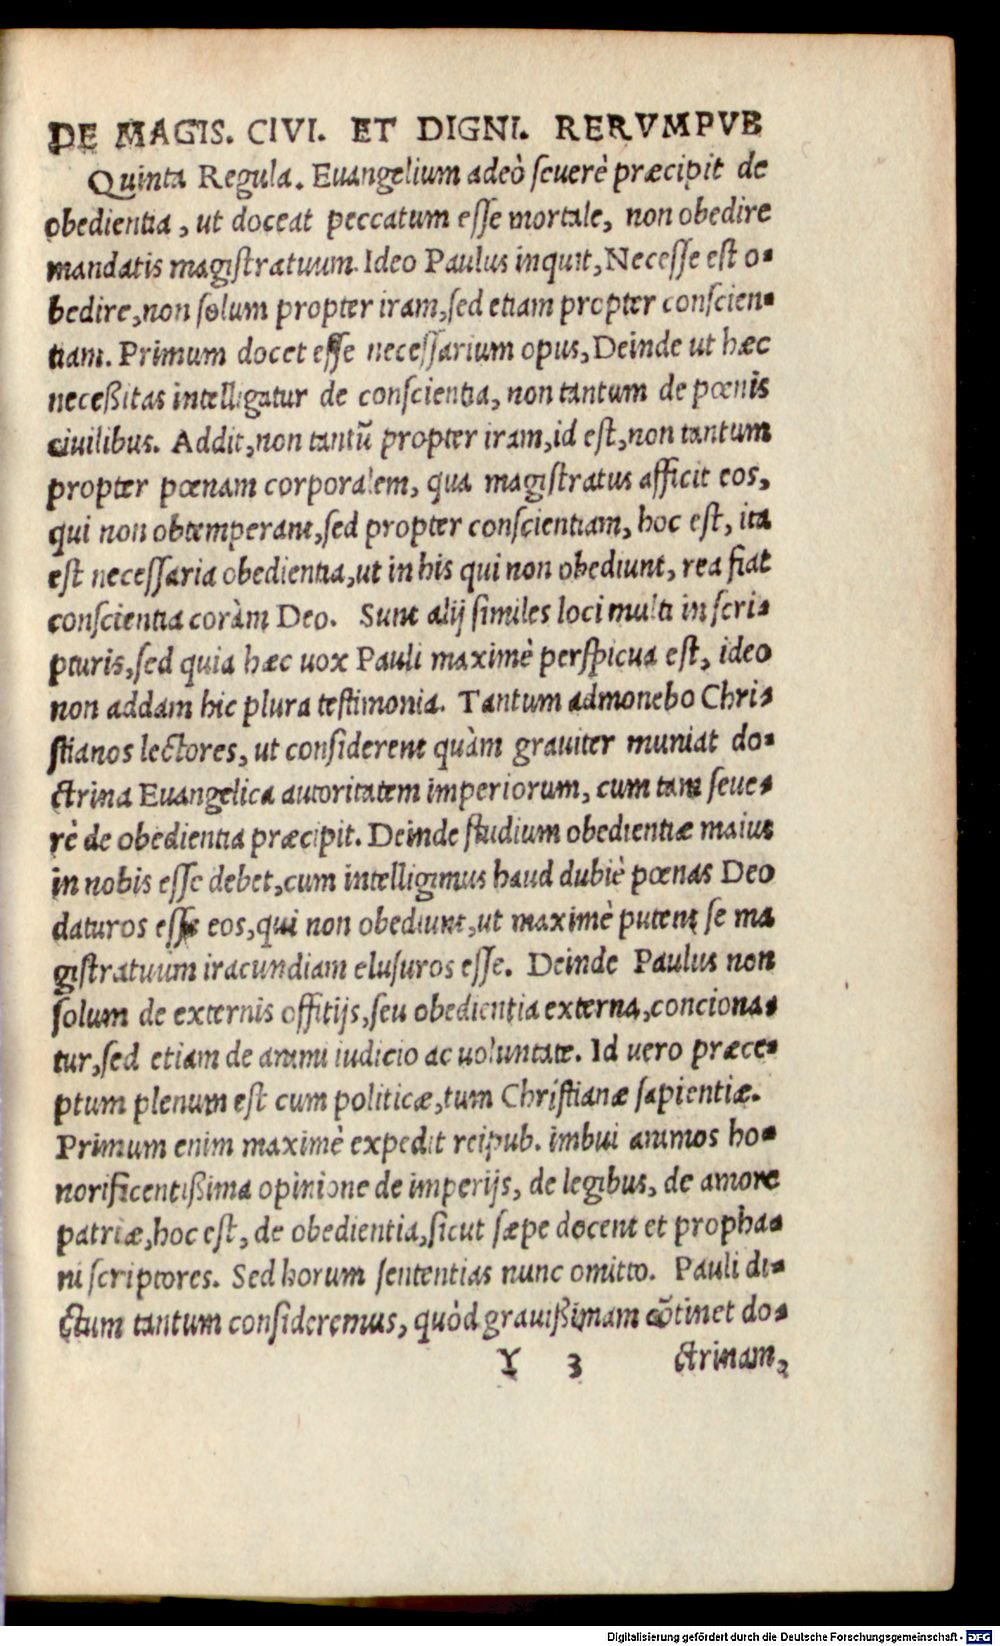 DE MAGIS. CIVI. ET DIGNI. RERVMPVB
Quinta Regula. Euangelium adeò seuerè præcipit de
obedientia, ut doceat peccatum esse mortale, non obedire
mandatis magistratuum. Ideo Paulus inquit, Necesse est o-
bedire, non solum propter iram, sed etiam propter conscien-
tiam. Primum docet esse necessarium opus, Deinde ut hæc
neceßitas intelligatur de conscientia, non tantum de pœnis
ciuilibus. Addit, non tantũ propter iram, id est, non tantum
propter pœnam corporalem, qua magistratus afficit eos,
qui non obtemperant, sed propter conscientiam, hoc est, ita
est necessaria obedientia, ut in his qui non obediunt, rea fiat
conscientia coràm Deo. Sunt alij similes loci multi in scri-
pturis, sed quia hæc uox Pauli maximè perspicua est, ideo
non addam hic plura testimonia. Tantum admonebo Chri-
stianos lectores, ut considerent quàm grauiter muniat do-
ctrina Euangelica autoritatem imperiorum, cum tam seue-
rè de obedientia præcipit. Deinde studium obedientiæ maius
in nobis esse debet, cum intelligimus haud dubiè pœnas Deo
daturos esse eos, qui non obediunt, ut maximè putent se ma
gistratuum iracundiam elusuros esse. Deinde Paulus non
solum de externis offitijs, seu obedientia externa, conciona-
tur, sed etiam de animi iudicio ac uoluntate. Id vero præce-
ptum plenum est cum politicæ, tum Christianæ sapientiæ.
Primum enim maximè expedit reipub. imbui animos ho-
norificentißima opinione de imperijs, de legibus, de amore
patriæ, hoc est, de obedientia, sicut sæpe docent et propha-
ni scriptores. Sed horum sententias nunc omitto. Pauli di-
ctum tantum consideremus, quòd grauißimam cõtinet do-
Y 3 ctrinam,
Digitalisierung gefördert durch die Deutsche Forschungsgemeinschaft - DFG